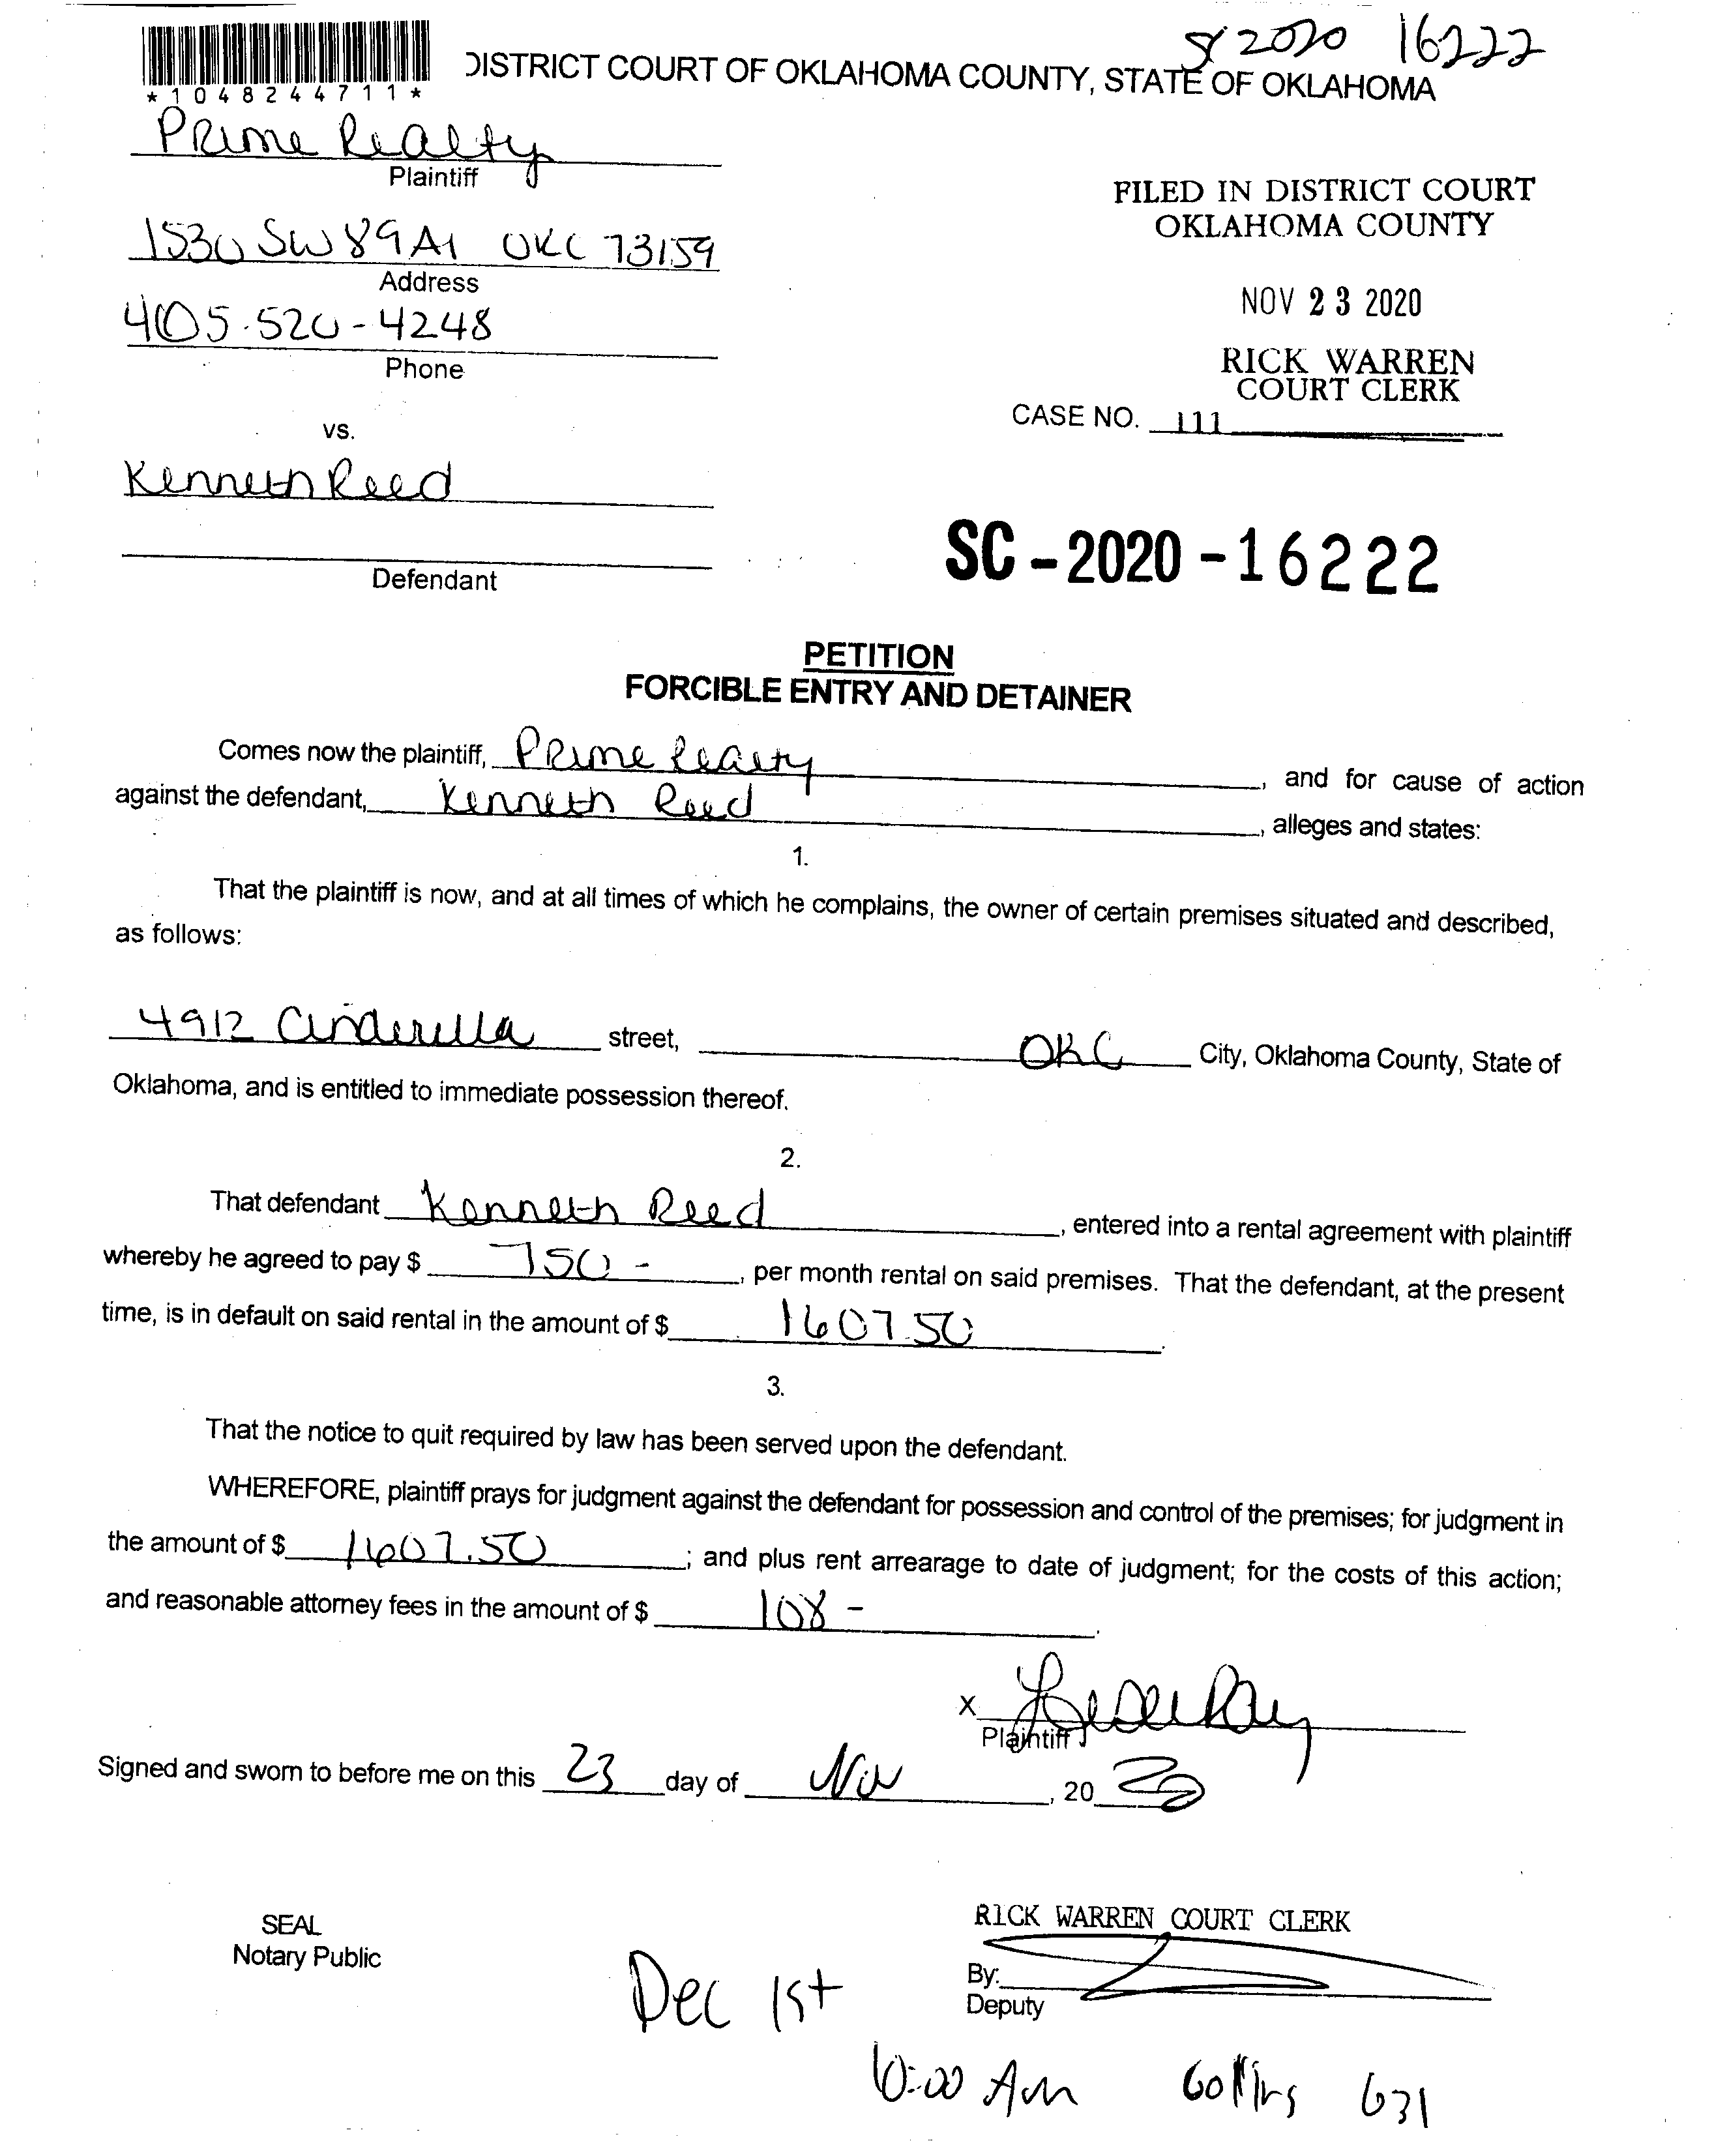 SC 2020 16222
*1048244711*
DISTRICT COURT OF OKLAHOMA COUNTY, STATE OF OKLAHOMA
Prime Realty
Plaintiff
1530 SW 89 A1 OKC 73159
Address
405.520-4248
Phone
FILED IN DISTRICT COURT
OKLAHOMA COUNTY
NOV 23 2020
RICK WARREN
COURT CLERK
CASE NO. 111
vs.
Kenneth Reed
Defendant
SC-2020-16222
PETITION
FORCIBLE ENTRY AND DETAINER
Comes now the plaintiff, Prime Realty, and for cause of action
against the defendant, Kenneth Reed, alleges and states:
1.
That the plaintiff is now, and at all times of which he complains, the owner of certain premises situated and described,
as follows:
4912 Cinderella street, OKC City, Oklahoma County, State of
Oklahoma, and is entitled to immediate possession thereof.
2.
That defendant Kenneth Reed, entered into a rental agreement with plaintiff
whereby he agreed to pay $ 750 -, per month rental on said premises. That the defendant, at the present
time, is in default on said rental in the amount of $ 1607.50.
3.
That the notice to quit required by law has been served upon the defendant.
WHEREFORE, plaintiff prays for judgment against the defendant for possession and control of the premises; for judgment in
the amount of $ 1607.50; and plus rent arrearage to date of judgment; for the costs of this action;
and reasonable attorney fees in the amount of $ 108 -.
X
Plaintiff
Signed and sworn to before me on this 23 day of Nov, 20 20
SEAL
Notary Public
RICK WARREN COURT CLERK
By:
Deputy
Dec 1st
10:00 Am Collins 631